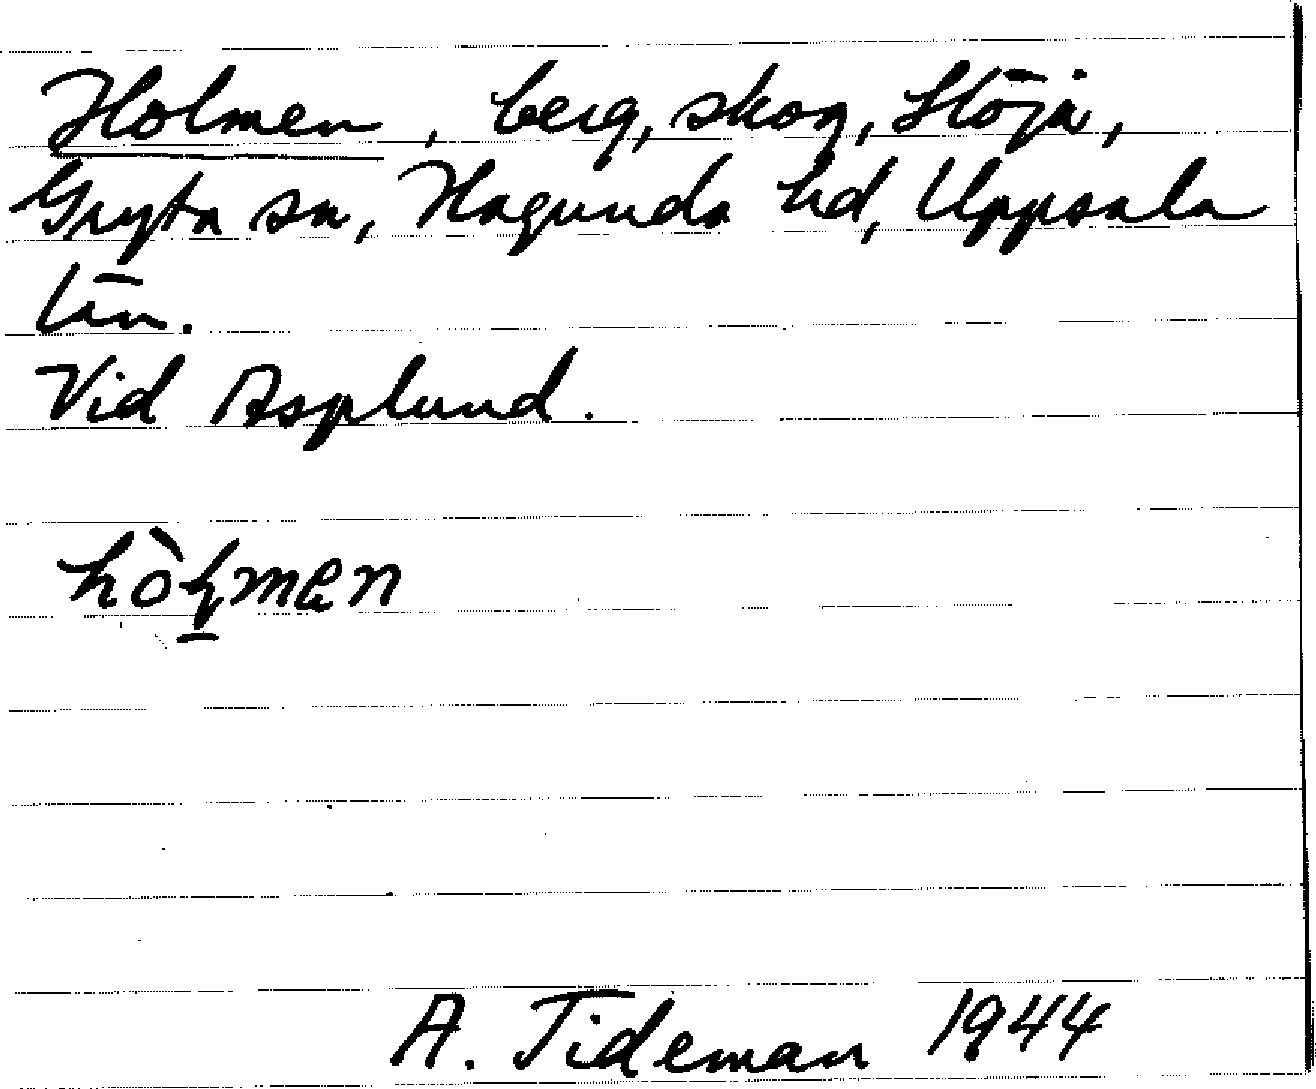 Holmen, berg, skog, Höja,
Gryta sn, Hagunda hd, Uppsala
län.
Vid Asplund.
A. Tideman 1944